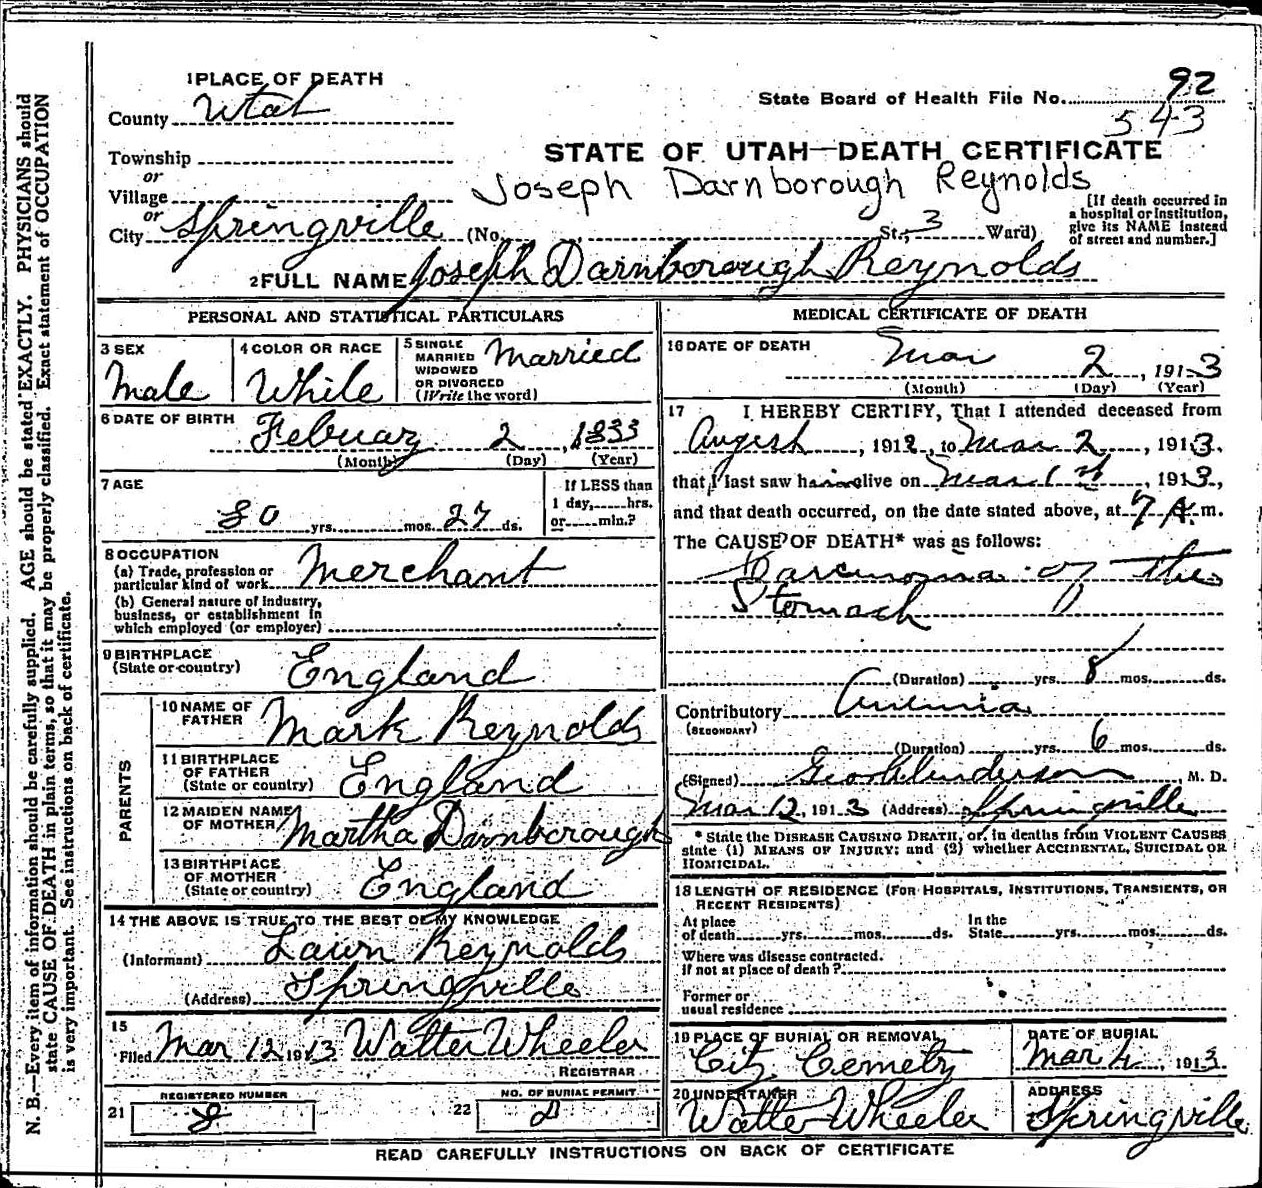 1 PLACE OF DEATH
County Utah
State Board of Health File No. 92
543
Township
or
Village
or
City Springville (No. St., 3 Ward)
STATE OF UTAH—DEATH CERTIFICATE
Joseph Darnborough Reynolds
[If death occurred in
a hospital or institution,
give its NAME instead
of street and number.]
2 FULL NAME Joseph Darnborough Reynolds
PERSONAL AND STATISTICAL PARTICULARS
3 SEX
Male
4 COLOR OR RACE
White
5 SINGLE
MARRIED
WIDOWED
OR DIVORCED
(Write the word)
Married
6 DATE OF BIRTH
Februay 2, 1833
(Month) (Day) (Year)
7 AGE
80 yrs. mos. 27 ds.
If LESS than
1 day, hrs.
or min.?
8 OCCUPATION
(a) Trade, profession or
particular kind of work Merchant
(b) General nature of industry,
business, or establishment in
which employed (or employer)
9 BIRTHPLACE
(State or country) England
PARENTS
10 NAME OF
FATHER Mark Reynolds
11 BIRTHPLACE
OF FATHER
(State or country) England
12 MAIDEN NAME
OF MOTHER Martha Darnborough
13 BIRTHPLACE
OF MOTHER
(State or country) England
14 THE ABOVE IS TRUE TO THE BEST OF MY KNOWLEDGE
(Informant) Reynolds
(Address) Springville
15
Filed Mar 12 1913 Walter Wheeler
REGISTRAR
REGISTERED NUMBER
21 8
NO. OF BURIAL PERMIT
22
MEDICAL CERTIFICATE OF DEATH
16 DATE OF DEATH
Mar 2, 1913
(Month) (Day) (Year)
17 I HEREBY CERTIFY, That I attended deceased from
August, 1912, to Mar 2, 1913,
that I last saw him alive on Mar 1st, 1913,
and that death occurred, on the date stated above, at 7 A.m.
The CAUSE OF DEATH* was as follows:
Carcinoma of the
Stomach
(Duration) yrs. 8 mos. ds.
Contributory Anemia
(SECONDARY)
(Duration) yrs. 6 mos. ds.
(Signed) Geo Anderson, M. D.
Mar 12, 1913 (Address) Springville
* State the DISEASE CAUSING DEATH, or, in deaths from VIOLENT CAUSES
state (1) MEANS OF INJURY; and (2) whether ACCIDENTAL, SUICIDAL OR
HOMICIDAL.
18 LENGTH OF RESIDENCE (FOR HOSPITALS, INSTITUTIONS, TRANSIENTS, OR
RECENT RESIDENTS)
At place
of death yrs. mos. ds.
In the
State yrs. mos. ds.
Where was disease contracted.
if not at place of death?
Former or
usual residence
19 PLACE OF BURIAL OR REMOVAL
City Cemetry
DATE OF BURIAL
Mar 4, 1913
20 UNDERTAKER
Walter Wheeler
ADDRESS
Springville
READ CAREFULLY INSTRUCTIONS ON BACK OF CERTIFICATE
N. B.—Every item of information should be carefully supplied. AGE should be stated EXACTLY. PHYSICIANS should
state CAUSE OF DEATH in plain terms, so that it may be properly classified. Exact statement of OCCUPATION
is very important. See instructions on back of certificate.